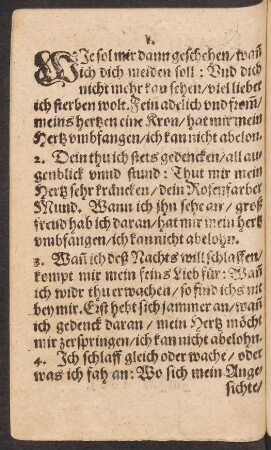 1.
WJe sol mir dann geschehen/wañ
ich dich meiden soll: Vnd dich
nicht mehr kan sehen/viel lieber
ich sterben wolt. Fein adelich vnd from̃/
meins hertzen eine Kron/hat mir mein
Hertz vmbfangen/ich kan nicht abelon.
2. Dein thu ich stets gedencken/all au-
genblick vnnd stund: Thut mir mein
Hertz sehr kräncken/dein Rosenfarber
Mund. Wann ich jhn sehe an/ groß
freud hab ich daran/hat mir mein hertz
vmbfangen/ich kan nicht abelohn.
3. Wañ ich deß Nachts will schlaffen/
kompt mir mein feins Lieb für: Wañ
ich widr thu erwachen/so find ichs nit
bey mir. Erst hebt sich jammer an/wañ
ich gedenck daran/ mein Hertz möcht
mir zerspringen/ich kan nicht abelohn.
4. Ich schlaff gleich oder wache/ oder
was ich fah an: Wo sich mein Ange-
sichte/